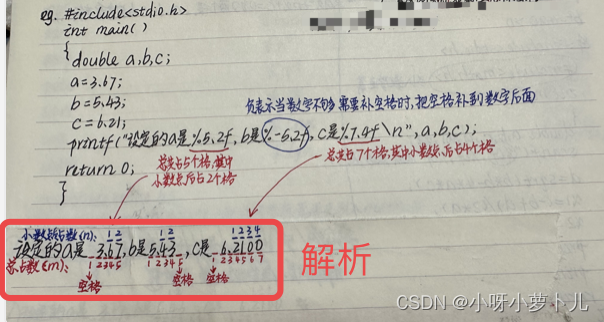 eg. #include<stdio.h>
int main()
{double a,b,c;
a=3.67;
b=5.43;
c=6.21;
负表示当数字不够需要补空格时,把空格补到数字后面
printf("设定的a是%5.2f,b是%-5.2f,c是%7.4f\n",a,b,c);
总共占5个格,其中
小数点后占2个格
总共占7个格,其中小数点后占4个格
return 0;
}
小数部占数(n): 1 2 1 2 1 2 3 4
设定的a是 3.67,b是5.43 ,c是 6.2100
总占数(m): 1 2 3 4 5 1 2 3 4 5 1 2 3 4 5 6 7
空格 空格 空格
解析
CSDN @小呀小萝卜儿